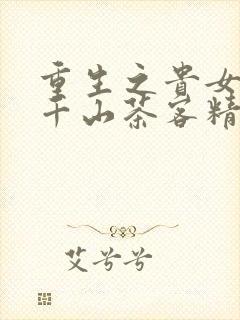 重生之貴女
千山茶客精
艾兮兮